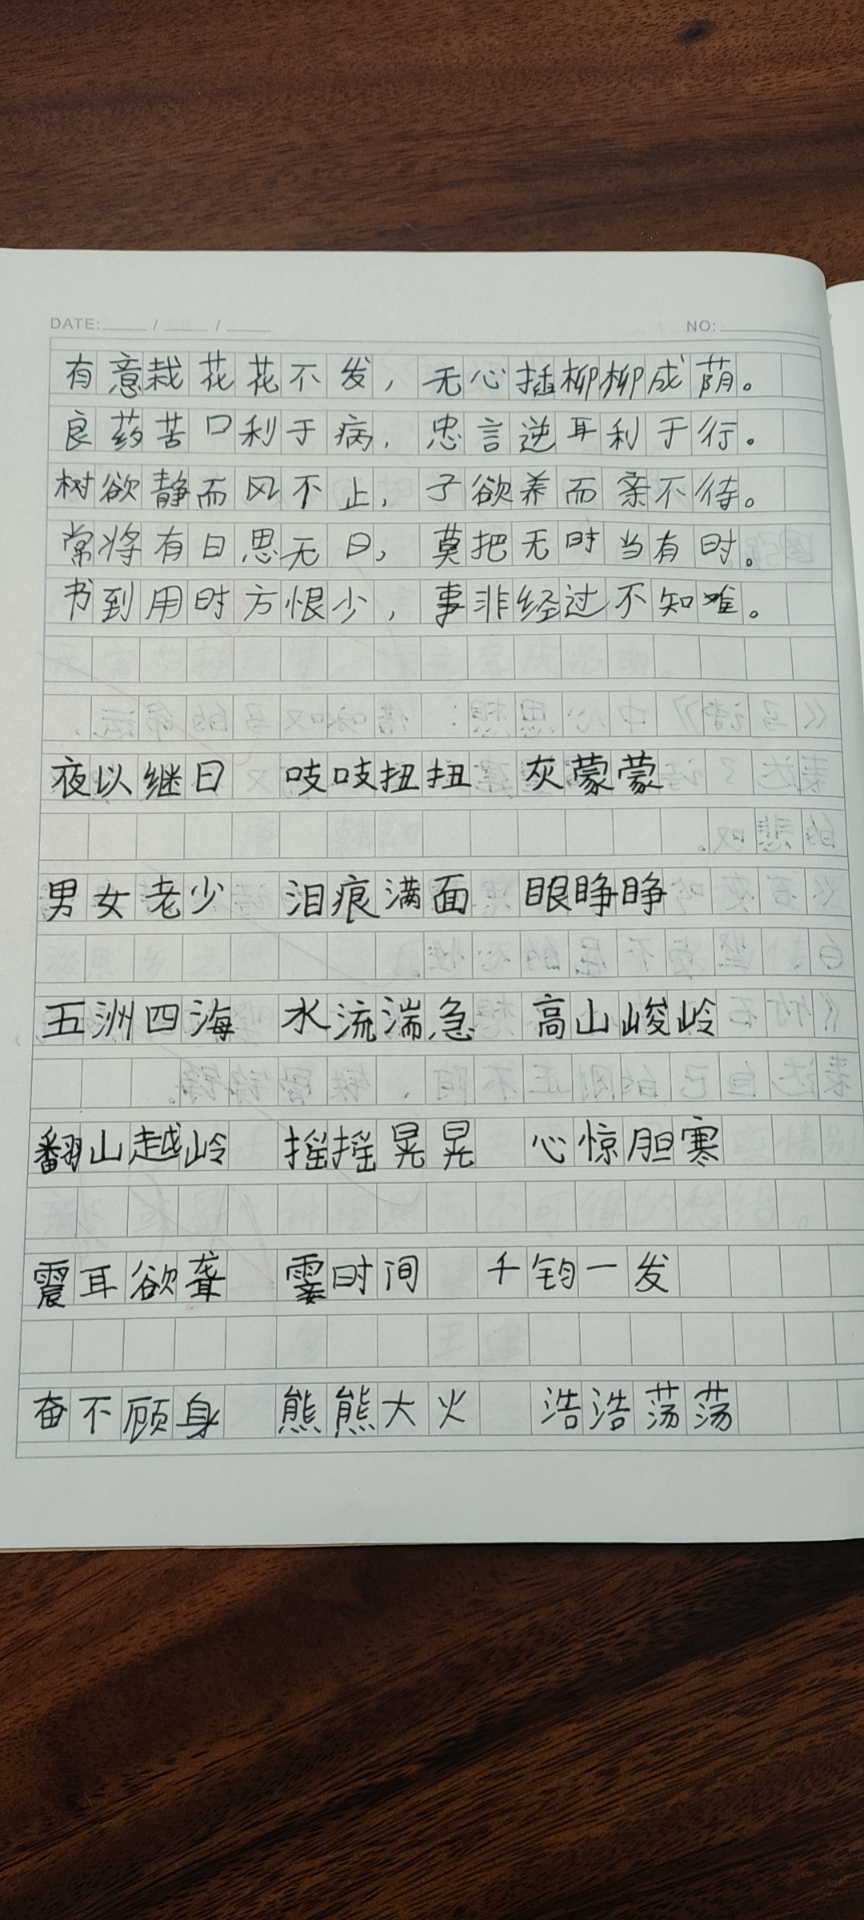 DATE: / / NO:
有意栽花花不发，无心插柳柳成荫。
良药苦口利于病，忠言逆耳利于行。
树欲静而风不止，子欲养而亲不待。
常将有日思无日，莫把无时当有时。
书到用时方恨少，事非经过不知难。
夜以继日 吱吱扭扭 灰蒙蒙
男女老少 泪痕满面 眼睁睁
五洲四海 水流湍急 高山峻岭
翻山越岭 摇摇晃晃 心惊胆寒
震耳欲聋 霎时间 千钧一发
奋不顾身 熊熊大火 浩浩荡荡